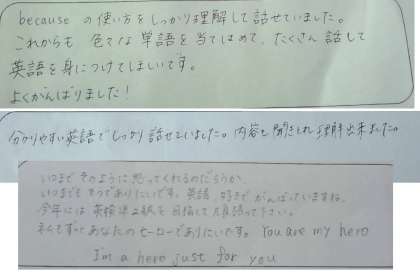 because の使い方をしっかり理解して話せていました。
これからも 色々な単語を当てはめて、たくさん話して
英語を身につけてほしいです。
よくがんばりました！
分かりやすい英語でしっかり話せていました。内容も聞きとれ理解出来ました。
いつまでそのように思ってくれるのだろうか。
いつまでもそうでありたいです。英語、好きでがんばっていますね。
今年には英検準2級を目指して頑張って下さい。
私もずっとあなたのヒーローでありたいです。You are my hero
I'm a hero just for you